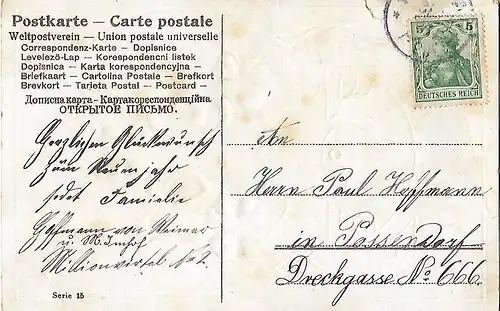 Postkarte — Carte postale
Weltpostverein — Union postale universelle
Correspondenz-Karte — Dopisnice
Levelező-Lap — Korespondencni listek
Dopisnica — Karta korespondencyjna —
Briefkaart — Cartolina Postale — Brefkort
Brevkort — Tarjeta Postal — Postcard —
Дописна карта - Картакореспонденційна
ОТКРЫТОЕ ПИСЬМО.
5 5
DEUTSCHES REICH
Herzlichen Glückwunsch
zum Neuen Jahr
Familie
Hoffmann von Weimar
u. M. Imhof
An
Herrn Paul Hoffmann
in Passendorf
Dreckgasse No 666.
Serie 15